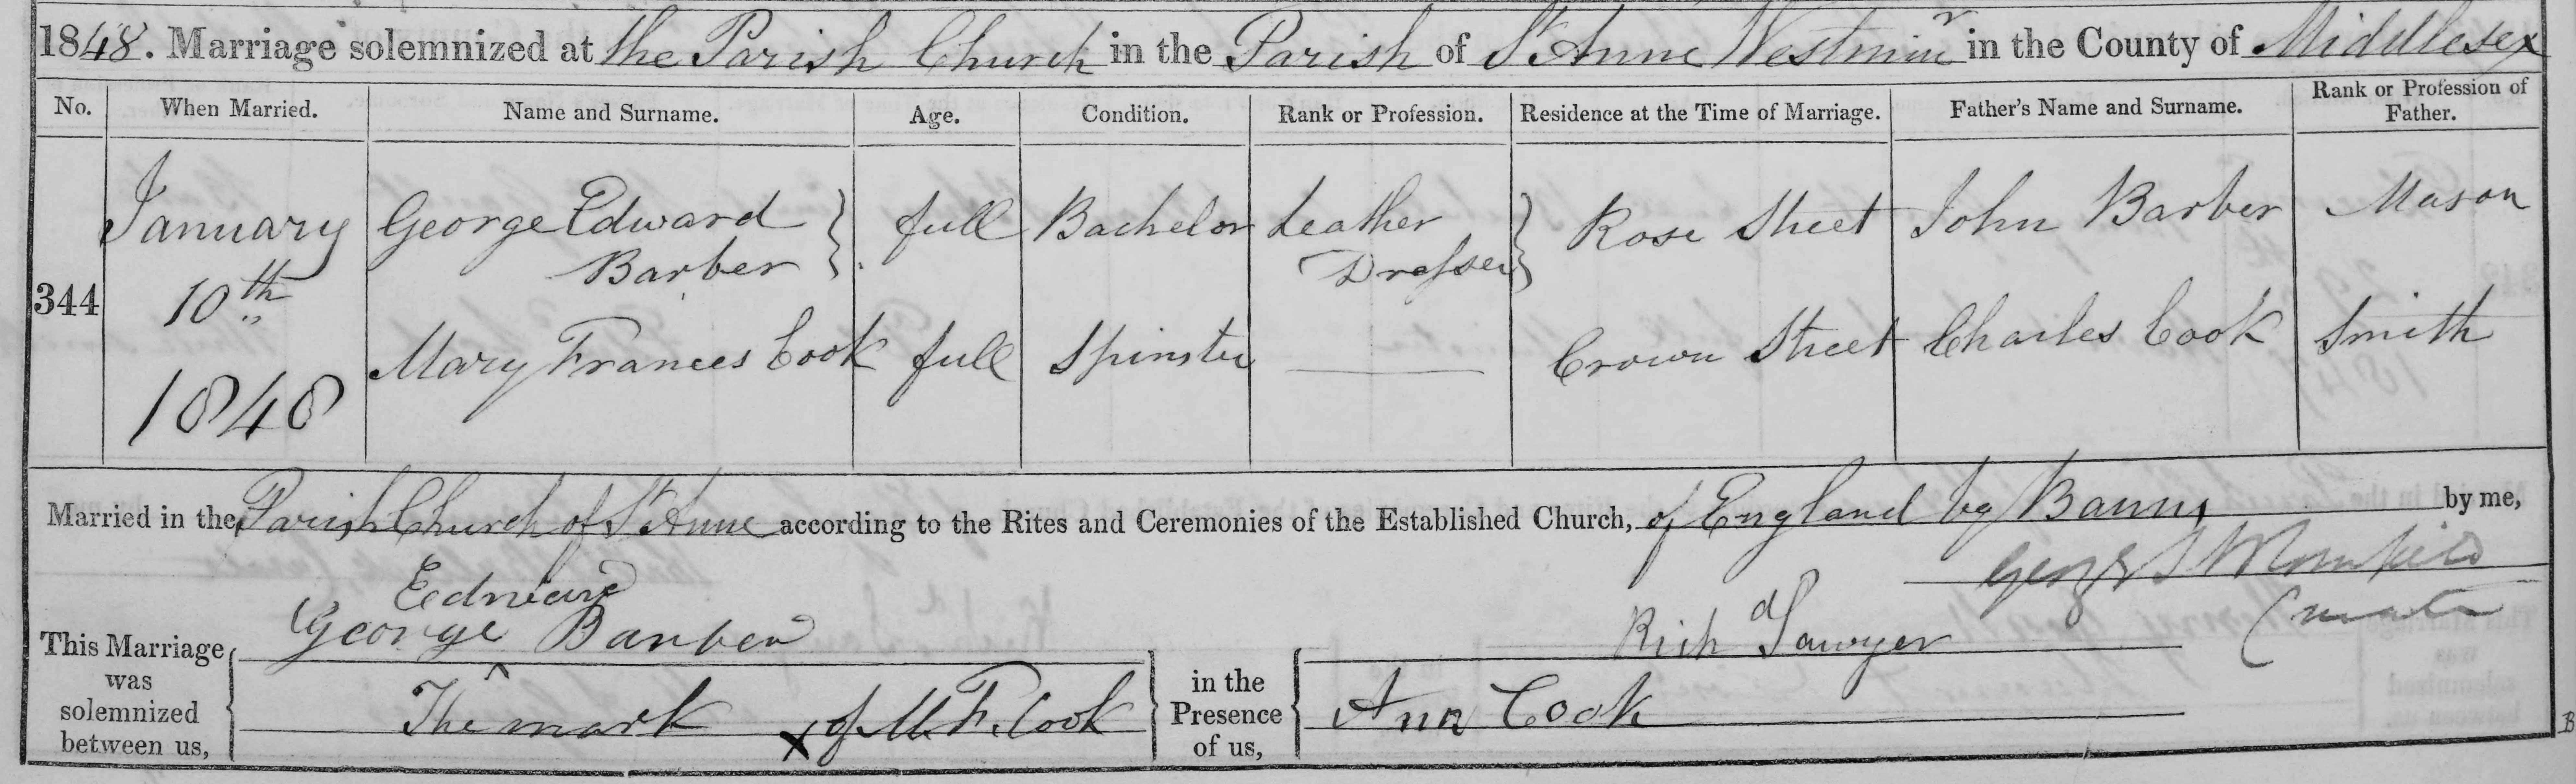 1848. Marriage solemnized at the Parish Church in the Parish of St Anne Westminr in the County of Middlesex
No. When Married. Name and Surname. Age. Condition. Rank or Profession. Residence at the Time of Marriage. Father's Name and Surname. Rank or Profession of Father.
344 January 10th 1848
George Edward Barber } full Bachelor Leather Dresser } Rose Street John Barber Mason
Mary Frances Cook full Spinster — Crown Street Charles Cook Smith
Married in the Parish Church of St Anne according to the Rites and Ceremonies of the Established Church, of England by Banns by me,
George
Curate
This Marriage was solemnized between us, { George ^ Edward Barber
The mark x of M. F. Cook } in the Presence of us, { Richd Sawyer
Ann Cook
B